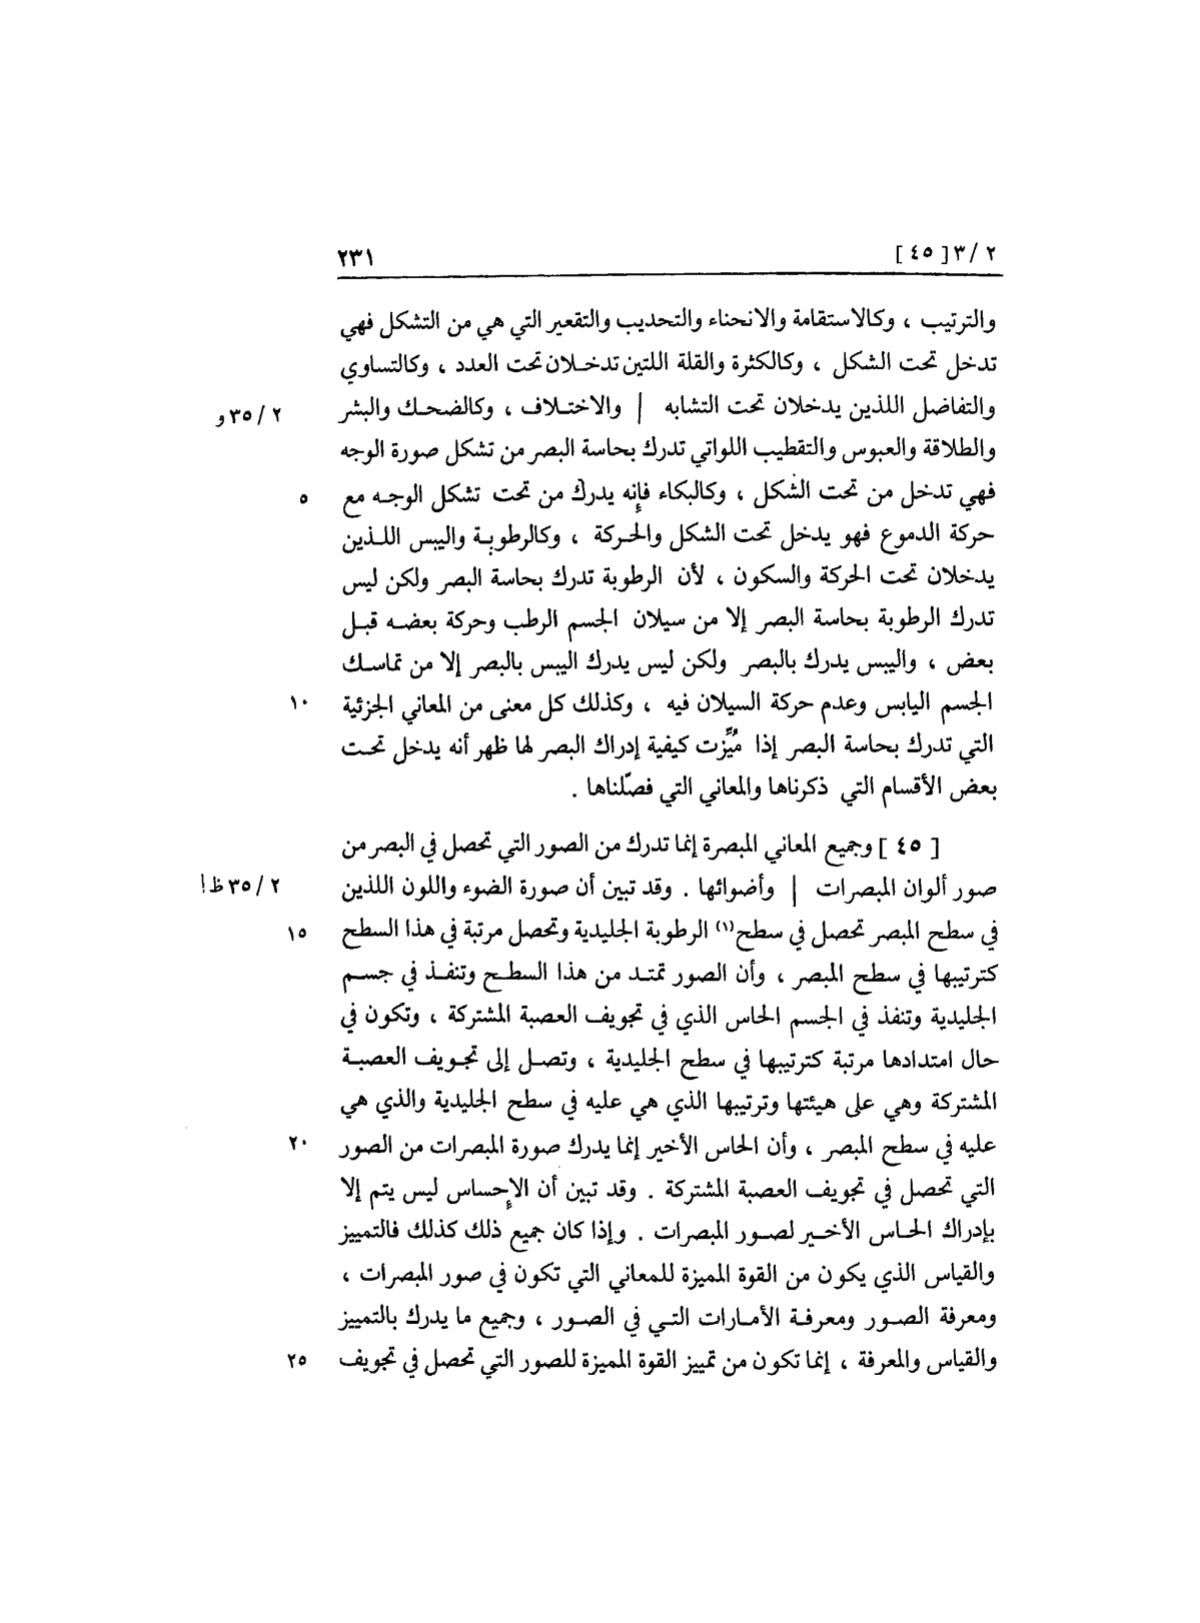 ٢ / ٣ [ ٤٥ ] ٢٣١
والترتيب ، وكالاستقامة والانحناء والتحديب والتقعير التي هي من التشكل فهي
تدخل تحت الشكل ، وكالكثرة والقلة اللتين تدخلان تحت العدد ، وكالتساوي
والتفاضل اللذين يدخلان تحت التشابه | والاختلاف ، وكالضحك والبشر ٢ / ٣٥ و
والطلاقة والعبوس والتقطيب اللواتي تدرك بحاسة البصر من تشكل صورة الوجه
فهي تدخل من تحت الشكل ، وكالبكاء فإنه يدرك من تحت تشكل الوجه مع ٥
حركة الدموع فهو يدخل تحت الشكل والحركة ، وكالرطوبة واليبس اللذين
يدخلان تحت الحركة والسكون ، لأن الرطوبة تدرك بحاسة البصر ولكن ليس
تدرك الرطوبة بحاسة البصر إلا من سيلان الجسم الرطب وحركة بعضه قبل
بعض ، واليبس يدرك بالبصر ولكن ليس يدرك اليبس بالبصر إلا من تماسك
الجسم اليابس وعدم حركة السيلان فيه ، وكذلك كل معنى من المعاني الجزئية ١٠
التي تدرك بحاسة البصر إذا مُيِّزت كيفية إدراك البصر لها ظهر أنه يدخل تحت
بعض الأقسام التي ذكرناها والمعاني التي فصّلناها .
[ ٤٥ ] وجميع المعاني المبصرة إنما تدرك من الصور التي تحصل في البصر من
صور ألوان المبصرات | وأضوائها . وقد تبين أن صورة الضوء واللون اللذين ٢ / ٣٥ ظ أ
في سطح المبصر تحصل في سطح(١) الرطوبة الجليدية وتحصل مرتبة في هذا السطح ١٥
كترتيبها في سطح المبصر ، وأن الصور تمتد من هذا السطح وتنفذ في جسم
الجليدية وتنفذ في الجسم الحاس الذي في تجويف العصبة المشتركة ، وتكون في
حال امتدادها مرتبة كترتيبها في سطح الجليدية ، وتصل إلى تجويف العصبة
المشتركة وهي على هيئتها وترتيبها الذي هي عليه في سطح الجليدية والذي هي
عليه في سطح المبصر ، وأن الحاس الأخير إنما يدرك صورة المبصرات من الصور ٢٠
التي تحصل في تجويف العصبة المشتركة . وقد تبين أن الإحساس ليس يتم إلا
بإدراك الحاس الأخير لصور المبصرات . وإذا كان جميع ذلك كذلك فالتمييز
والقياس الذي يكون من القوة المميزة للمعاني التي تكون في صور المبصرات ،
ومعرفة الصور ومعرفة الأمارات التي في الصور ، وجميع ما يدرك بالتمييز
والقياس والمعرفة ، إنما تكون من تمييز القوة المميزة للصور التي تحصل في تجويف ٢٥